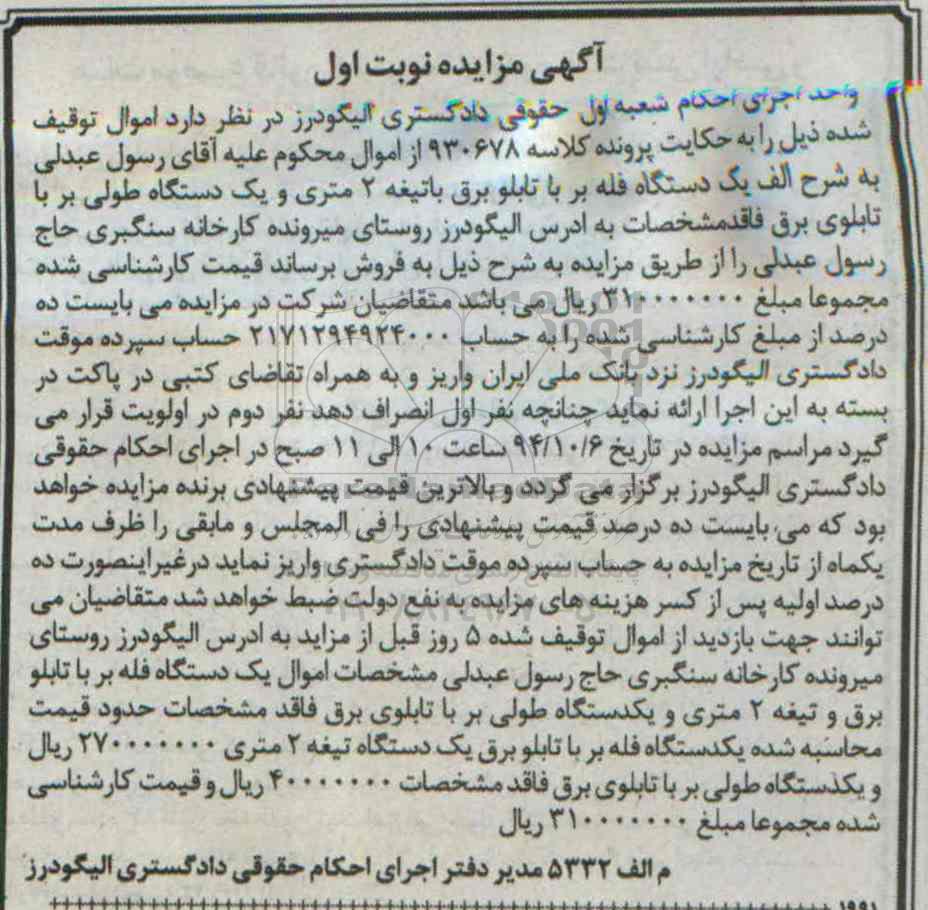 آگهی مزایده نوبت اول
واحد اجرای احکام شعبه اول حقوقی دادگستری الیگودرز در نظر دارد اموال توقیف
شده ذیل را به حکایت پرونده کلاسه ۹۳۰۶۷۸ از اموال محکوم علیه آقای رسول عبدلی
به شرح الف یک دستگاه فله بر با تابلو برق باتیغه ۲ متری و یک دستگاه طولی بر با
تابلوی برق فاقدمشخصات به ادرس الیگودرز روستای میرونده کارخانه سنگبری حاج
رسول عبدلی را از طریق مزایده به شرح ذیل به فروش برساند قیمت کارشناسی شده
مجموعا مبلغ ۳۱۰۰۰۰۰۰۰ ریال می باشد متقاضیان شرکت در مزایده می بایست ده
درصد از مبلغ کارشناسی شده را به حساب ۲۱۷۱۲۹۴۹۲۴۰۰۰ حساب سپرده موقت
دادگستری الیگودرز نزد بانک ملی ایران واریز و به همراه تقاضای کتبی در پاکت در
بسته به این اجرا ارائه نماید چنانچه نفر اول انصراف دهد نفر دوم در اولویت قرار می
گیرد مراسم مزایده در تاریخ ۹۴/۱۰/۶ ساعت ۱۰ الی ۱۱ صبح در اجرای احکام حقوقی
دادگستری الیگودرز برگزار می گردد و بالاترین قیمت پیشنهادی برنده مزایده خواهد
بود که می بایست ده درصد قیمت پیشنهادی را فی المجلس و مابقی را ظرف مدت
یکماه از تاریخ مزایده به حساب سپرده موقت دادگستری واریز نماید درغیراینصورت ده
درصد اولیه پس از کسر هزینه های مزایده به نفع دولت ضبط خواهد شد متقاضیان می
توانند جهت بازدید از اموال توقیف شده ۵ روز قبل از مزاید به ادرس الیگودرز روستای
میرونده کارخانه سنگبری حاج رسول عبدلی مشخصات اموال یک دستگاه فله بر با تابلو
برق و تیغه ۲ متری و یکدستگاه طولی بر با تابلوی برق فاقد مشخصات حدود قیمت
محاسبه شده یکدستگاه فله بر با تابلو برق یک دستگاه تیغه ۲ متری ۲۷۰۰۰۰۰۰۰ ریال
و یکدستگاه طولی بر با تابلوی برق فاقد مشخصات ۴۰۰۰۰۰۰۰ ریال و قیمت کارشناسی
شده مجموعا مبلغ ۳۱۰۰۰۰۰۰۰ ریال
م الف ۵۳۳۲ مدیر دفتر اجرای احکام حقوقی دادگستری الیگودرز
۱۹۹۱